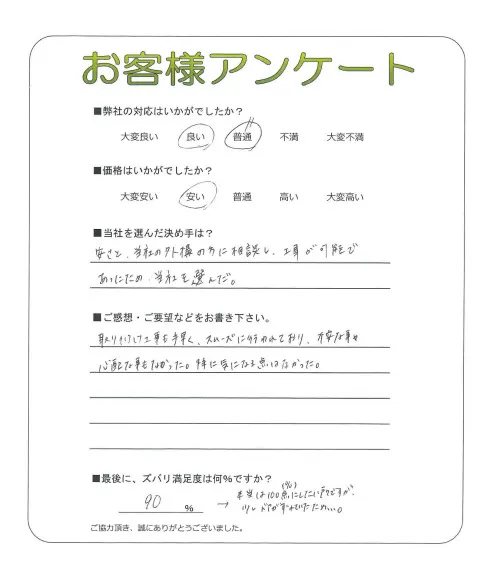 お客様アンケート
■弊社の対応はいかがでしたか?
大変良い 良い 普通 不満 大変不満
■価格はいかがでしたか?
大変安い 安い 普通 高い 大変高い
■当社を選んだ決め手は?
安さと、当社の外構の方に相談し、工事が可能で
あったため、当社を選んだ。
■ご感想・ご要望などをお書き下さい。
取り付け工事も手早く、スムーズに行われており、不安な事や
心配な事もなかった。特に気になる点はなかった。
■最後に、ズバリ満足度は何%ですか?
90 % → 本当は100点(%)にしたい所ですが、
少しドアがずれていたため…。
ご協力頂き、誠にありがとうございました。